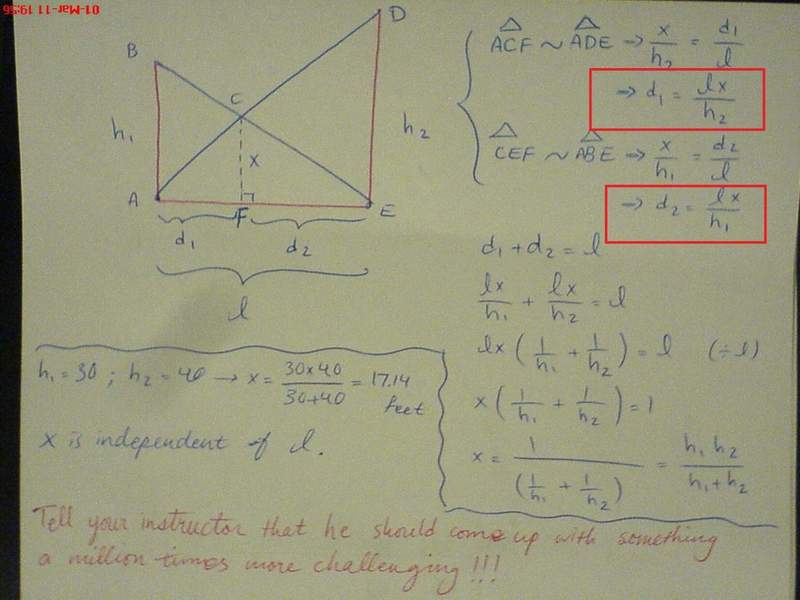 01-Mar-11 19:56
D
B
C
h₁
h₂
x
A
F
E
d₁
d₂
l
ACF ~ ADE → x/h₂ = d₁/l
→ d₁ = lx/h₂
CEF ~ ABE → x/h₁ = d₂/l
→ d₂ = lx/h₁
d₁ + d₂ = l
lx/h₁ + lx/h₂ = l
lx (1/h₁ + 1/h₂) = l (÷ l)
x (1/h₁ + 1/h₂) = 1
x = 1/(1/h₁ + 1/h₂) = h₁ h₂/h₁ + h₂
h₁ = 30 ; h₂ = 40 → x = 30x40/30+40 = 17.14
feet
x is independent of l.
Tell your instructor that he should come up with something
a million times more challenging !!!